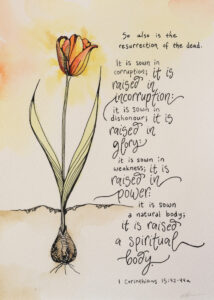 So also is the
resurrection of the dead.
It is sown in
corruption; it is
raised in
incorruption:
it is sown in
dishonour; it is
raised in
glory:
it is sown in
weakness; it is
raised in
power:
it is sown
a natural body;
it is raised
a spiritual
body
1 Corinthians 15:42-44a